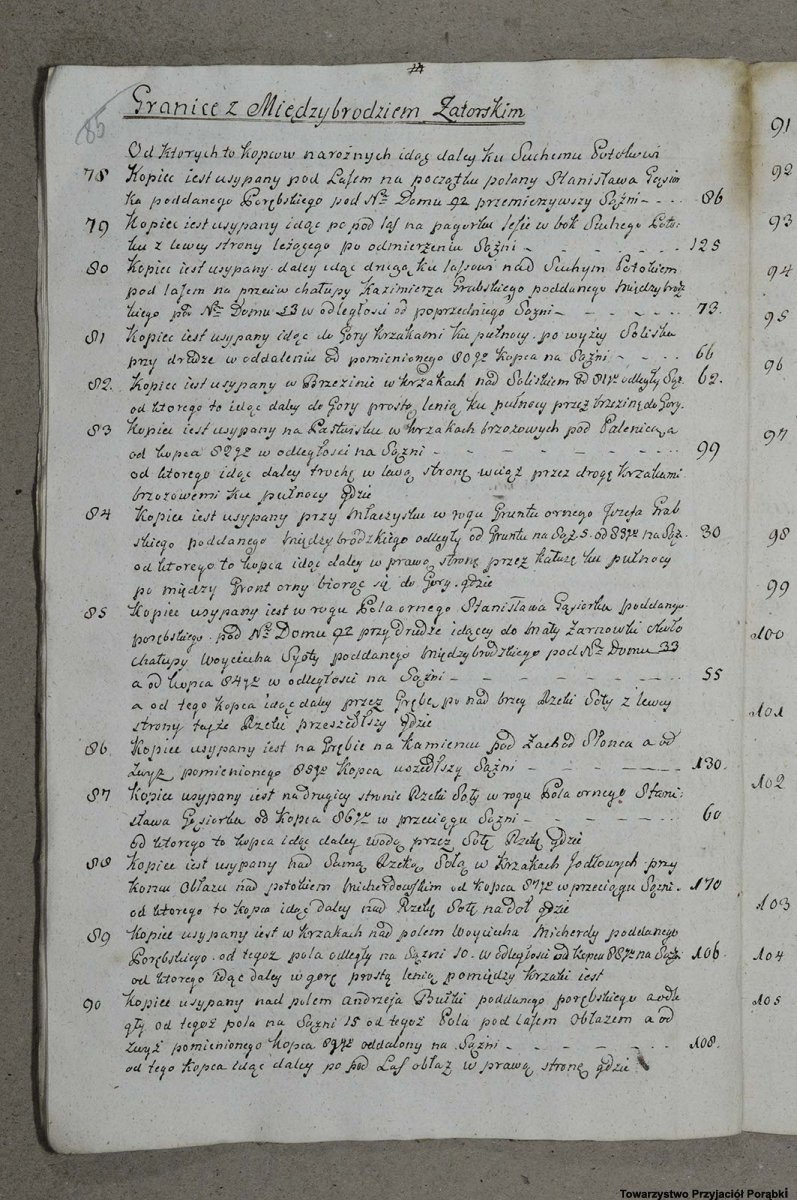 85
Granice z Międzybrodziem Zatorskim
Od ktorych to kopcow narożnych idąc daley ku Suchemu Potokowi
78 Kopiec iest usypany pod Lasem na początku polany Stanisława Gąsior
ka poddanego Porębskiego pod Nro Domu 92 przemierzywszy Sążni - - - - 86
79 Kopiec iest usypany idąc po pod las na pagorku lesie w bok Suchego Poto:
ku z lewey strony leżącego po odmierzeniu Sążni - - - - 125
80 Kopiec iest usypany daley idąc drogą ku lasowi nad Suchym Potokiem
pod lasem na przeciw chałupy Kazimierza Grabskiego poddanego Międzybrodz
kiego pod Nro Domu 23 w odległości od poprzedniego Sążni - - - - 73.
81 Kopiec iest usypany idąc do Gory krzakami ku pułnocy po wyżey Soliska
przy drodze w oddaleniu od pomienionego 80go kopca na Sążni - - - - 66
82. Kopiec iest usypany w Brzezinie w krzakach nad Soliskiem od 81go odległy Sąż. 62.
od ktorego to idąc daley do Gory prostą lenią ku pułnocy przez brzezinę do Gory.
83 Kopiec iest usypany na Pastwisku w krzakach brzozowych pod Palenicą a
od kopca 82go w odległości na Sążni - - - - 99
od ktorego idąc daley trochę w lewą stronę wciąż przez drogę krzakami
brzozowemi ku pułnocy gdzie
84 Kopiec iest usypany przy w rogu Gruntu ornego Jozefa Grab
skiego poddanego Międzybrodzkiego odległy od Gruntu na Sąż. 5. od 83go na Sąż. 30
od ktorego to kopca idąc daley w prawą stronę przez kałużę ku pułnocy
po między Gront orny biorąc się do Gory gdzie
85 Kopiec usypany iest w rogu Pola ornego Stanisława Gąsiorka poddanego
porębskiego pod Nro Domu 92 przy drodze idącey do Mały Żarnowki około
chałupy Woyciecha Syoty poddanego Międzybrodzkiego pod Nro Domu 33
a od kopca 84go w odległości na Sążni - - - - 55
a od tego kopca idąc daley przez Grębę po nad brzeg Rzeki Soły z lewey
strony teyże Rzeki przeszedłszy gdzie
86 Kopiec usypany iest na Grębie na kamieniu pod Zachod Słonca a od
zwyż pomienionego 85go Kopca uszedłszy Sążni - - - - 130.
87 Kopiec usypany iest na drugiey stronie Rzeki Soły w rogu Pola ornego Stani:
sława Gąsiorka od Kopca 86go w przeciągu Sążni - - - - 60
od ktorego to kopca idąc daley wodą przez Sołę Rzekę gdzie
88 Kopiec iest usypany nad Samą Rzeką Sołą w krzakach Jodłowych przy
koncu Obłazu nad potokiem Micherdowskim od kopca 87go w przeciągu Sążni - 170
od ktorego to kopca idąc daley nad Rzekę Sołę na doł gdzie
89 Kopiec usypany iest w krzakach nad polem Woyciecha Micherdy poddanego
Porębskiego od tegoż pola odległy na Sążni 10. w odległości od kopca 88go na Sążni 106
od ktorego idąc daley w gorę prostą lenią pomiędzy krzaki iest
90 Kopiec usypany nad polem Andrzeja Bułki poddanego porębskiego a odle
gły od tegoż pola na Sążni 15 od tegoż Pola pod lasem Obłazem a od
zwyż pomienionego kopca 89go oddalony na Sążni - - - - 108.
od tego kopca idąc daley po pod Las obłaz w prawą stronę gdzie
91
92
93
94
95
96
97
98
99
100
101
102
103
104
105
Towarzystwo Przyjaciół Porąbki